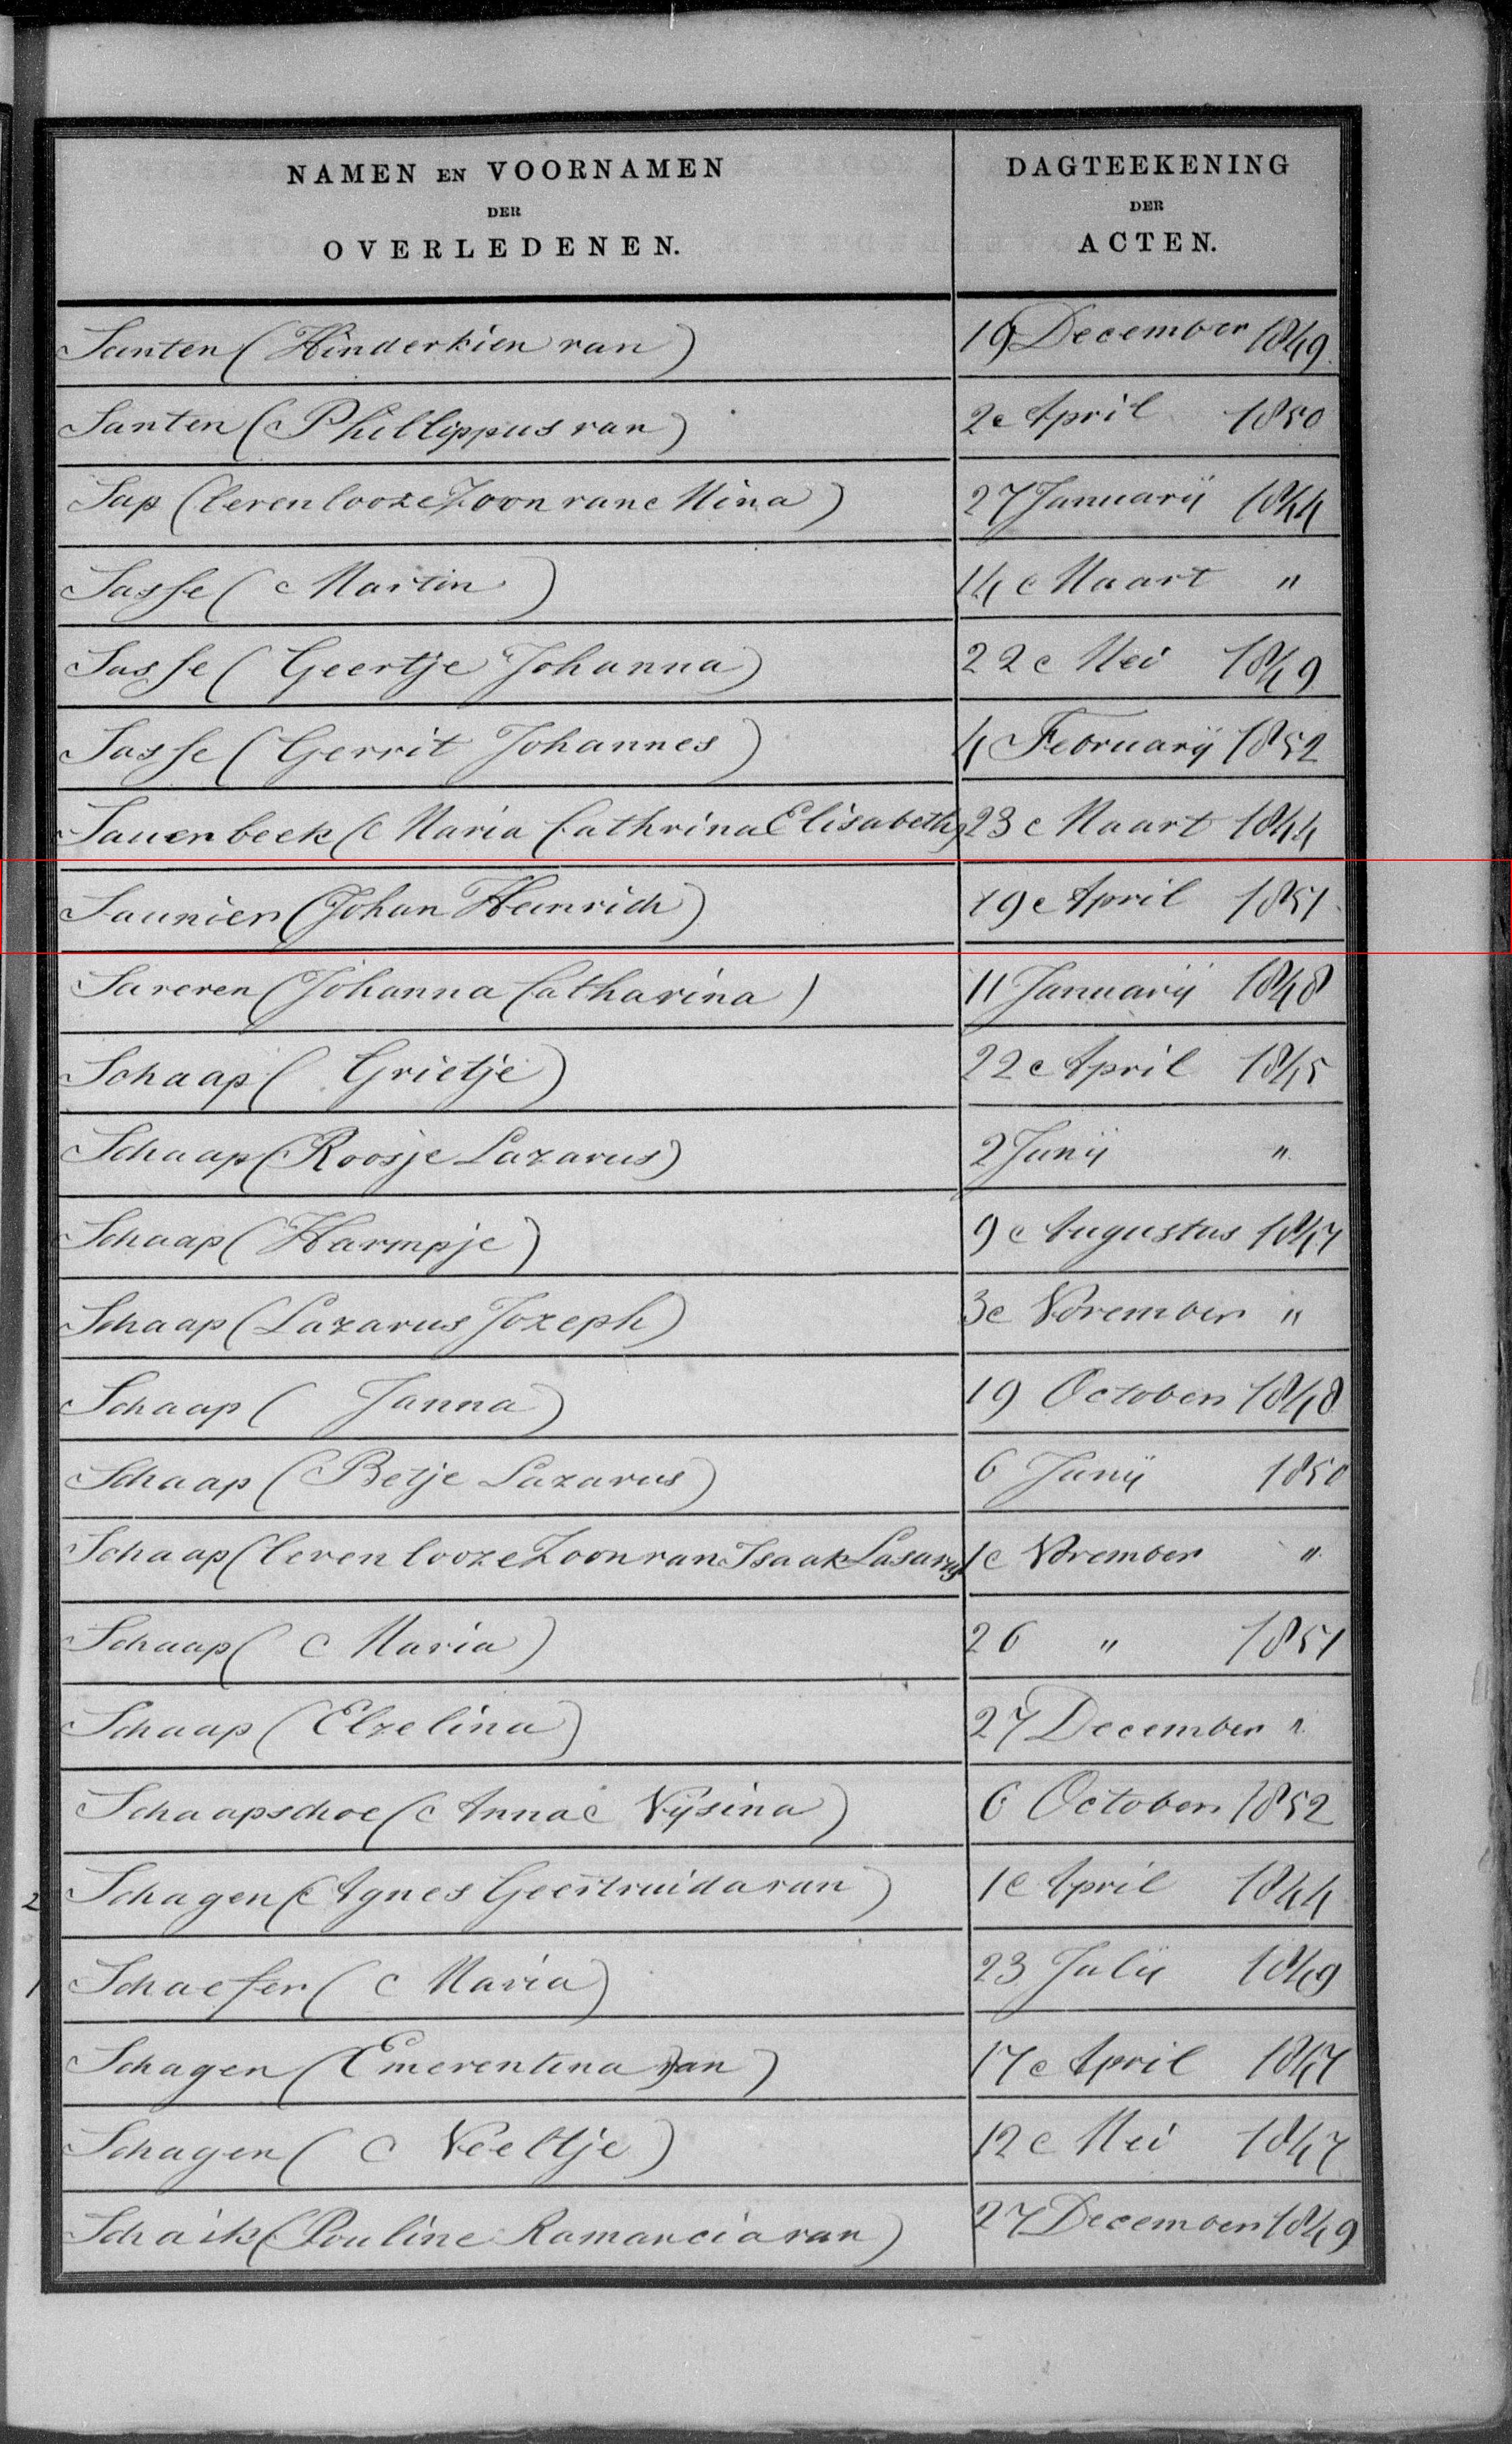 NAMEN EN VOORNAMEN
DER
OVERLEDENEN.
DAGTEEKENING
DER
ACTEN.
Santen (Hinderkien van) 19 December 1849.
Santen (Phillippus van) 2 April 1850
Sap (levenlooze Zoon van Mina) 27 Januarij 1844
Sasse (Martin) 14 Maart "
Sasse (Geertje Johanna) 22 Mei 1849
Sasse (Gerrit Johannes) 4 Februarij 1852
Sauerbeek (Maria Cathrina Elisabeth) 23 Maart 1844
Saunier (Johan Heinrich) 19 April 1851
Saveren (Johanna Catharina) 11 Januarij 1848
Schaap (Grietje) 22 April 1845
Schaap (Roosje Lazarus) 2 Junij "
Schaap (Harmpje) 9 Augustus 1847
Schaap (Lazarus Jozeph) 3 November "
Schaap (Janna) 19 October 1848
Schaap (Betje Lazarus) 6 Junij 1850
Schaap (levenlooze Zoon van Isaak Lasarus) 1 November "
Schaap (Maria) 26 " 1851
Schaap (Elzelina) 27 December "
Schaapschoe (Anna Nijsina) 6 October 1852
2 Schagen (Agnes Geertruida van) 1 April 1844
1 Schaefer (Maria) 23 Julij 1849
Schagen (Emerentina van) 17 April 1847
Schagen (Neeltje) 12 Mei 1847
Schaik (Pouline Ramancia van) 27 December 1849